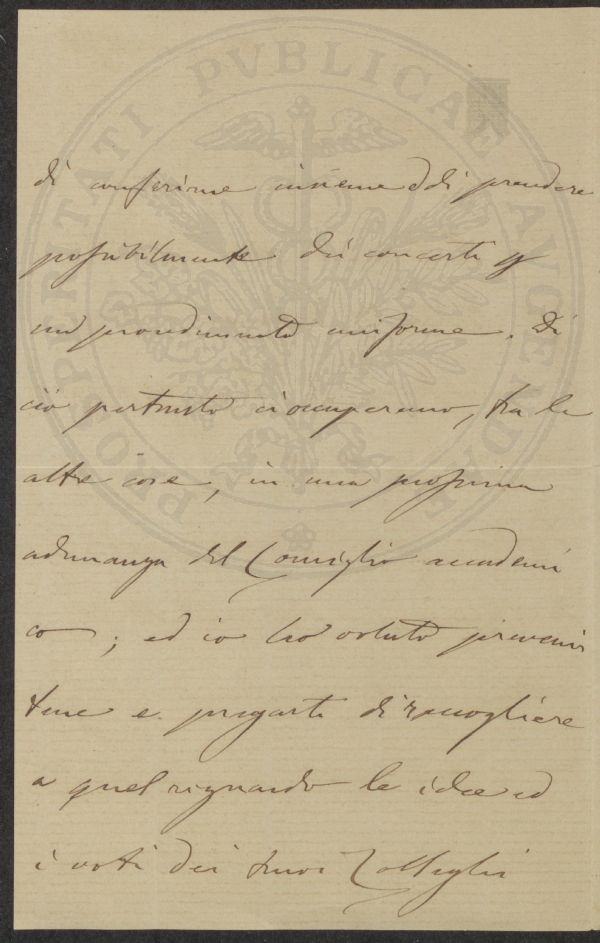 PROSPERITATI PVBLICAE AVGENDAE
di conferirne insieme e di prendere
possibilmente dei concerti p
un procedimento uniforme. Di
ciò pertanto ci occuperemo, tra le
altre cose, in una prossima
adunanza del Consiglio accademi
co; ed io ho voluto preveni
tene e pregarti di raccogliere
a quel riguardo le idee ed
i voti dei tuoi Colleghi